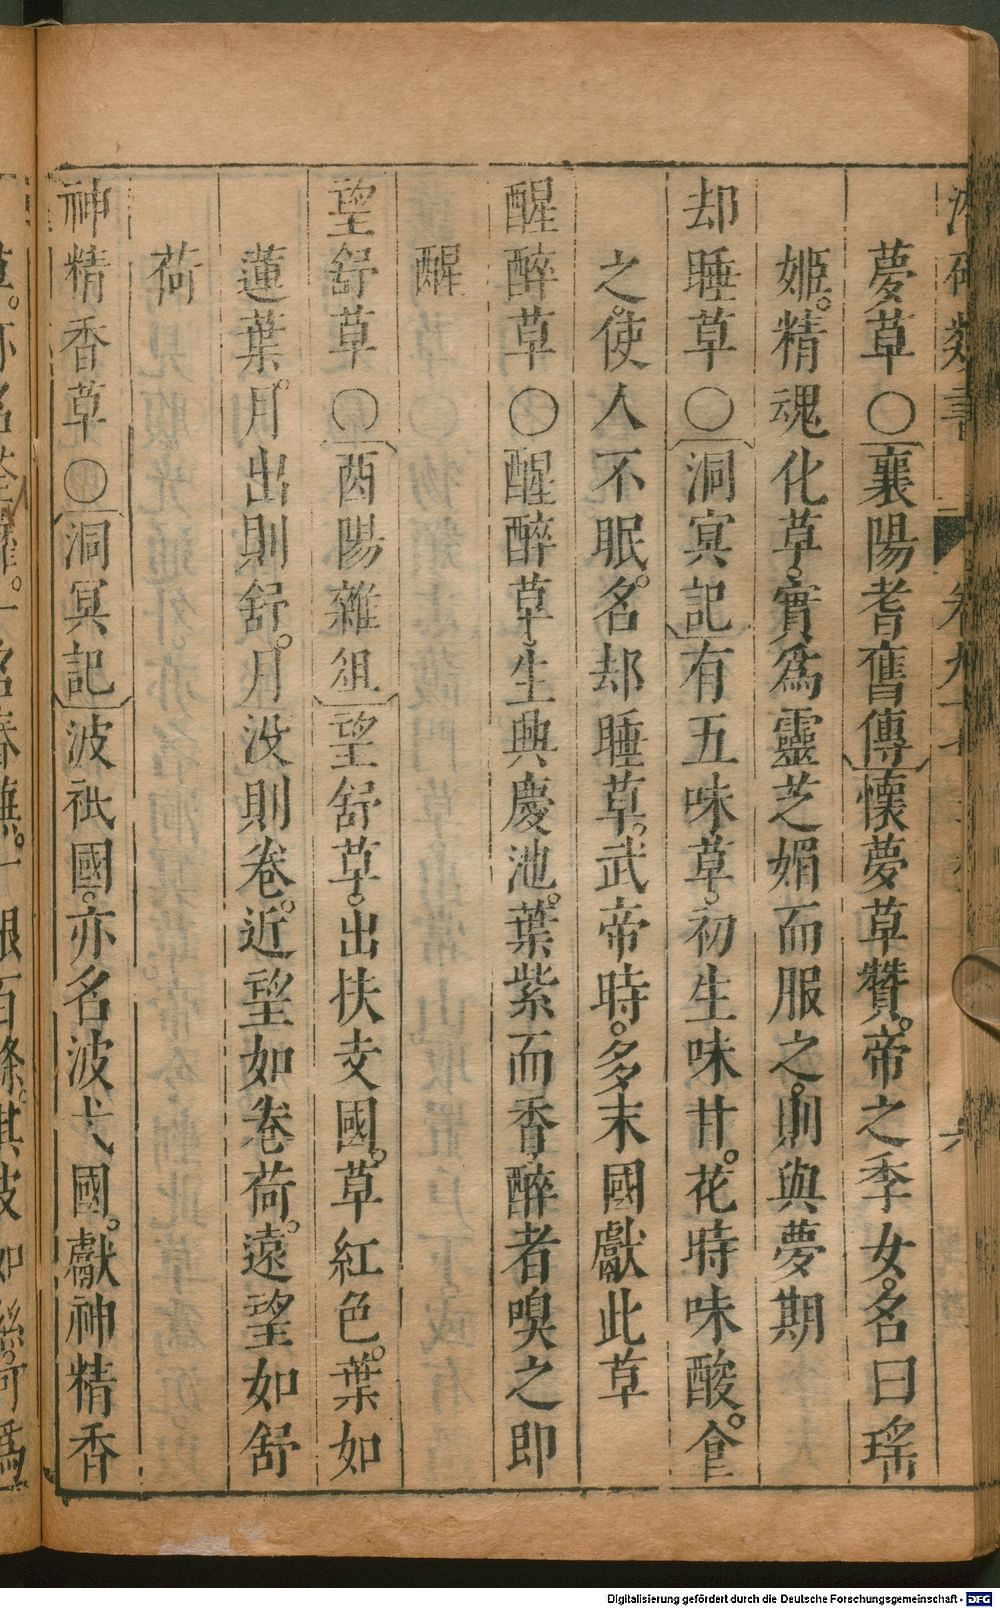 夢草○襄陽耆舊傳懷夢草贊。帝之季女。名曰瑤
姬。精魂化草。實爲靈芝媚而服之。則與夢期
却睡草○洞冥記有五味草。初生味甘。花時味酸。食
之。使人不眠。名却睡草。武帝時。多末國獻此草
醒醉草○醒醉草生興慶池。葉紫而香醉者嗅之即
醒
望舒草○酉陽雜俎望舒草。出扶支國。草紅色。葉如
蓮葉。月出則舒。月没則卷。近望如卷荷。遠望如舒
荷
神精香草○洞冥記波祇國。亦名波弋國。獻神精香
Digitalisierung gefördert durch die Deutsche Forschungsgemeinschaft - DFG